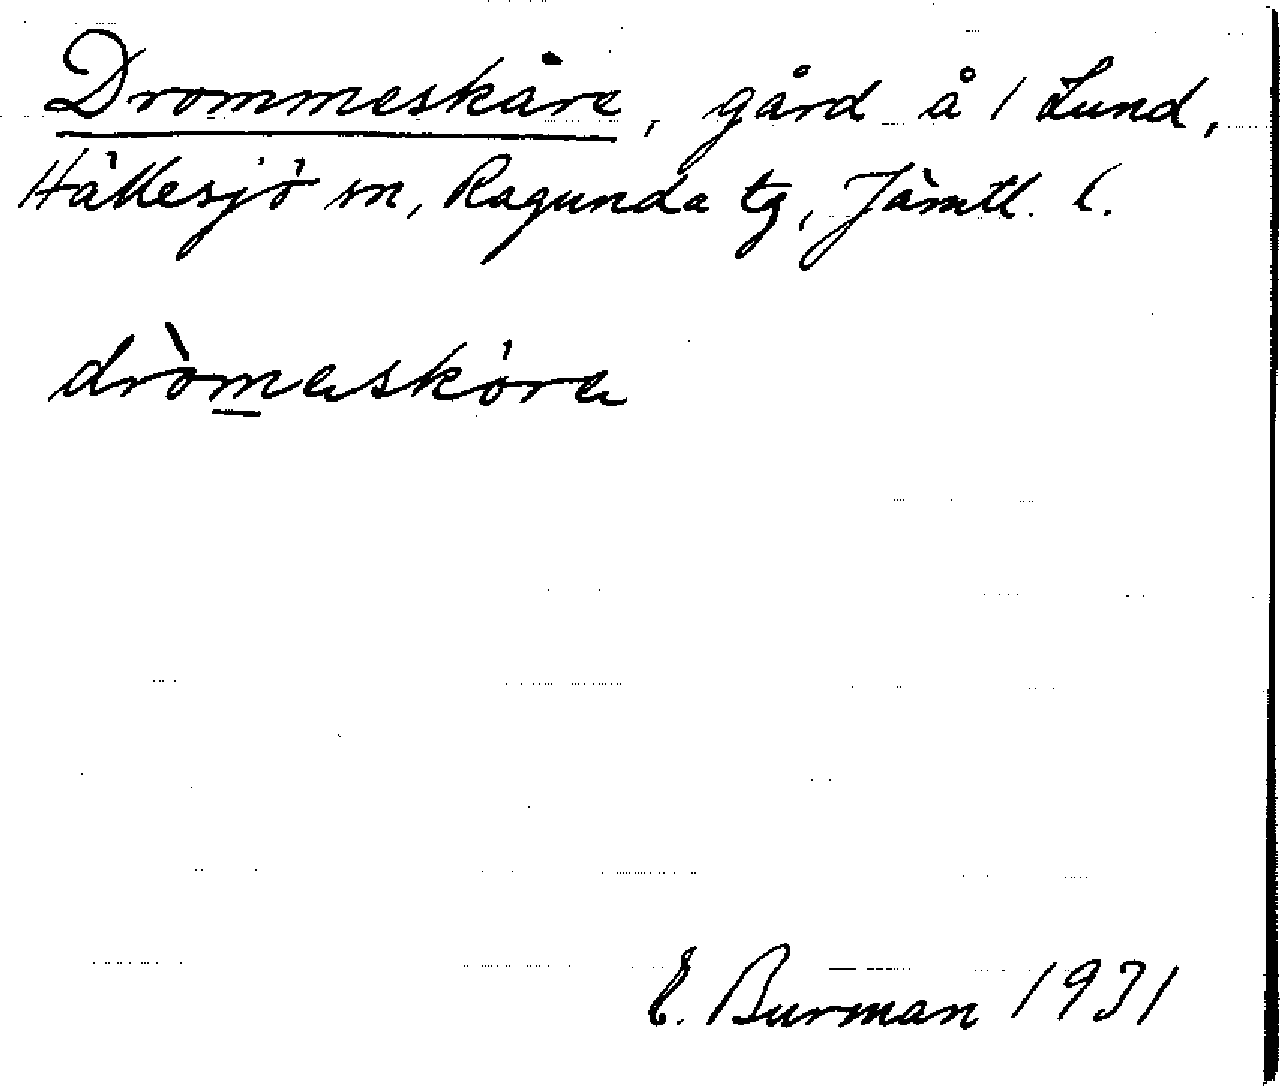 Drommeskåra, gård å 1 Lund,
Hällesjö sn, Ragunda tg, Jämtl. l.
dròmaskòra
E. Burman 1931